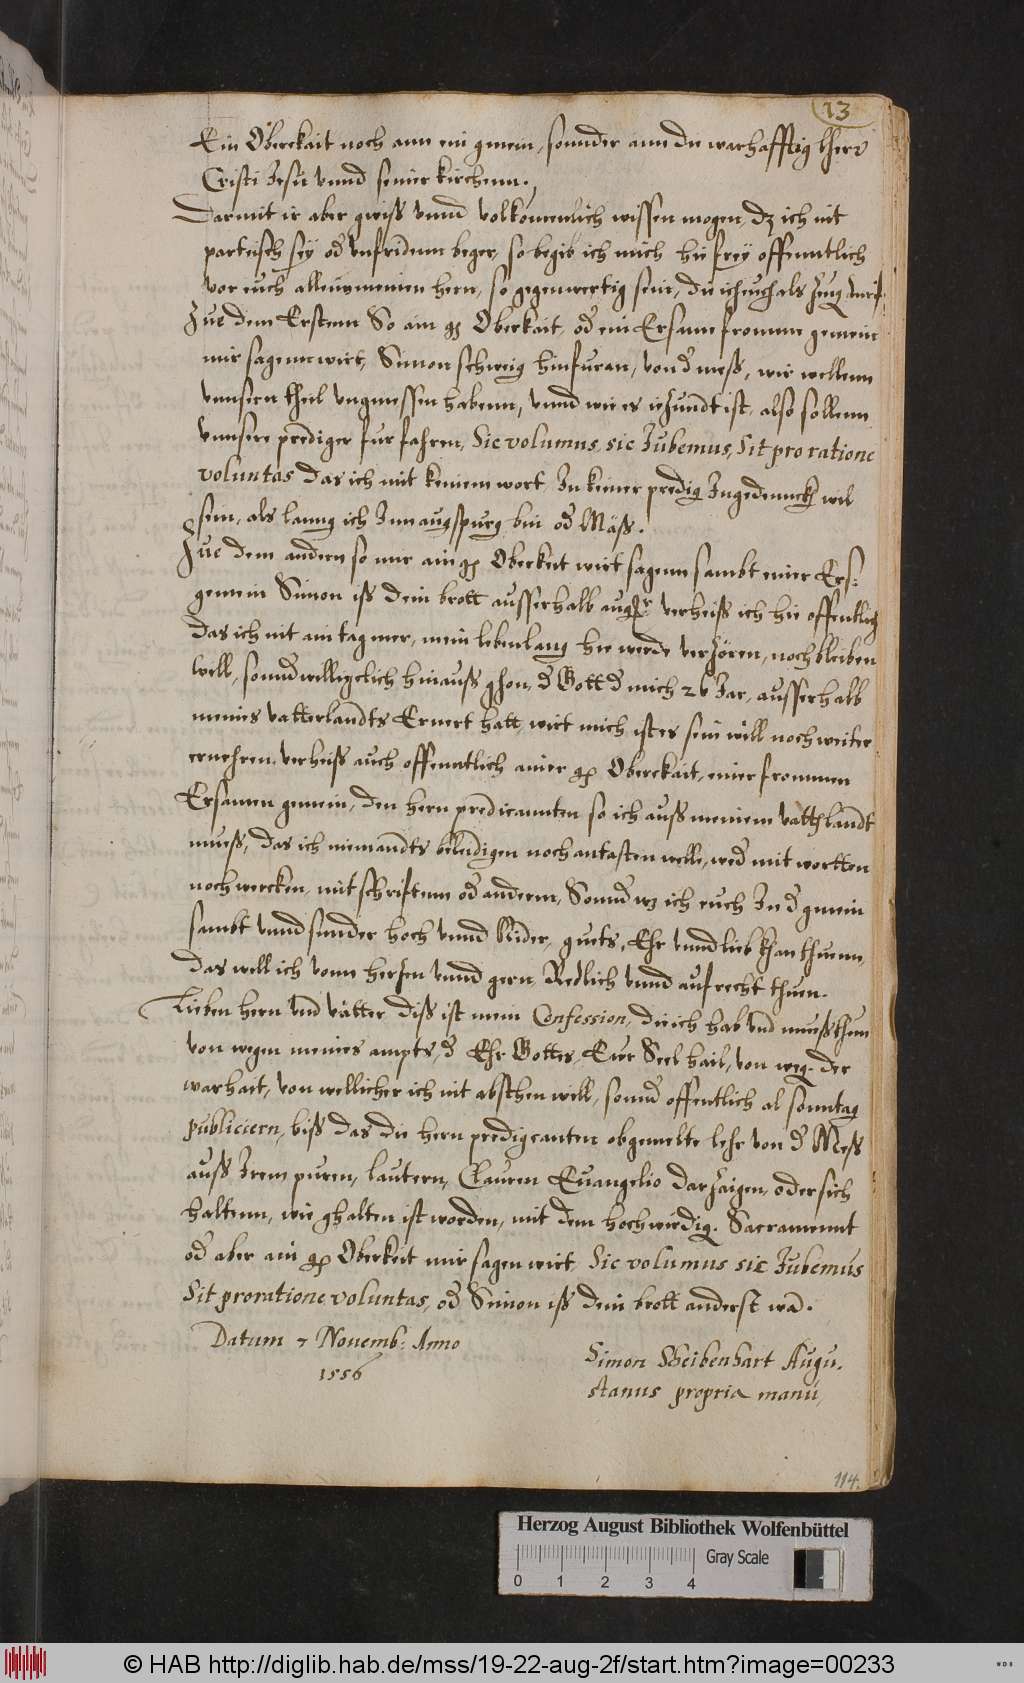 13
Ein Oberckait noch ann ein gmein, sonnder ann die warhafftig kherr
Cristi Jesu vnnd seiner kirchenn.
Darmit ir aber gwiss vnnd volkomenlich wissen mogen, dz ich nit
parteisch sey od vnfridenn beger, so begib ich mich hie frey offenntlich
vor euch allenn meinen hern, so gegenwertig sein, die ich euch als Zeug
Zue dem Erstenn So ain gz Oberkait, od ein Ersame fromme gemein
mir sagenn wirt, Simon schweig hinfuran, von d mess, wir wellenn
vnnsern theil vngmessen habenn, vnnd wie es iezundt ist, also sollenn
vnnsere prediger furfahren, Sic volumus, sic Jubemus, Sit pro ratione
voluntas das ich mit keinem wort, In keiner predig Ingedennck wil
sein, als lanng ich Inn augspurg bin od Mäss.
Zue dem andern so mir ain gz Oberkeit wirt sagenn sambt einer Ers:
gemein Simon iss dein brott ausserhalb augspr verheiss ich hie offentlich
das ich nit ain tag mer, mein lebenlang hie werde verzören, noch bleiben
well, sonnd williglich hinauss ghon, d Gott d mich 26 Jar, ausserhalb
meines vatterlandts Ernert hatt, wirt mich ist es sein will noch weiter
ernehren, verheiss auch offenntlich ainer gz Oberckait, einer frommen
Ersamen gemein, den hern predicannten so ich auss meinem vatterlandt
muess, das ich niemandts beleidigen noch antasten welle, wed mit wortten
noch wercken, mit schrifftenn od anderm, Sonnd wz ich euch In d gmein
sambt vnnd sunder hoch vnnd Nider, guets, Ehr vnnd lieb khan thuenn,
das will ich vonn herzen vnnd gern, Redlich vnnd auffrecht thuen.
Lieben hern vnd vätter diss ist mein Confession, die ich hab vnd muess thun
von wegen meines ampts, d Ehr Gottes, Eur Seel hail, von weg. der
warhait, von wellicher ich nit absthen will, sonnd offentlich al sonntag
publiciern, biss das die hern predigcanten obgemelte lehr von d Mess
auss Irem puren, lautern, Clauren Euangelio darzaigen, oder sich
haltenn, wie ghalten ist worden, mit dem hochwirdig. Sacramennt
od aber ain gz Oberkeit mir sagen wirt, Sic volumus sic Jubemus
Sit pro ratione voluntas, od Simon iss dein brott anderst wa.
Datum 7 Nouemb: Anno
1556
Simon Scheibenhart Augu.
stanus propria manu,
114.
Herzog August Bibliothek Wolfenbüttel
Gray Scale
0 1 2 3 4
© HAB http://diglib.hab.de/mss/19-22-aug-2f/start.htm?image=00233